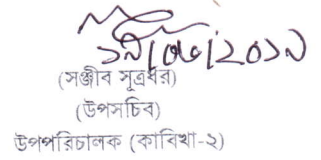 ১৯/০৬/২০১৯
(সঞ্জীব সূত্রধর)
(উপসচিব)
উপপরিচালক (কাবিখা-২)